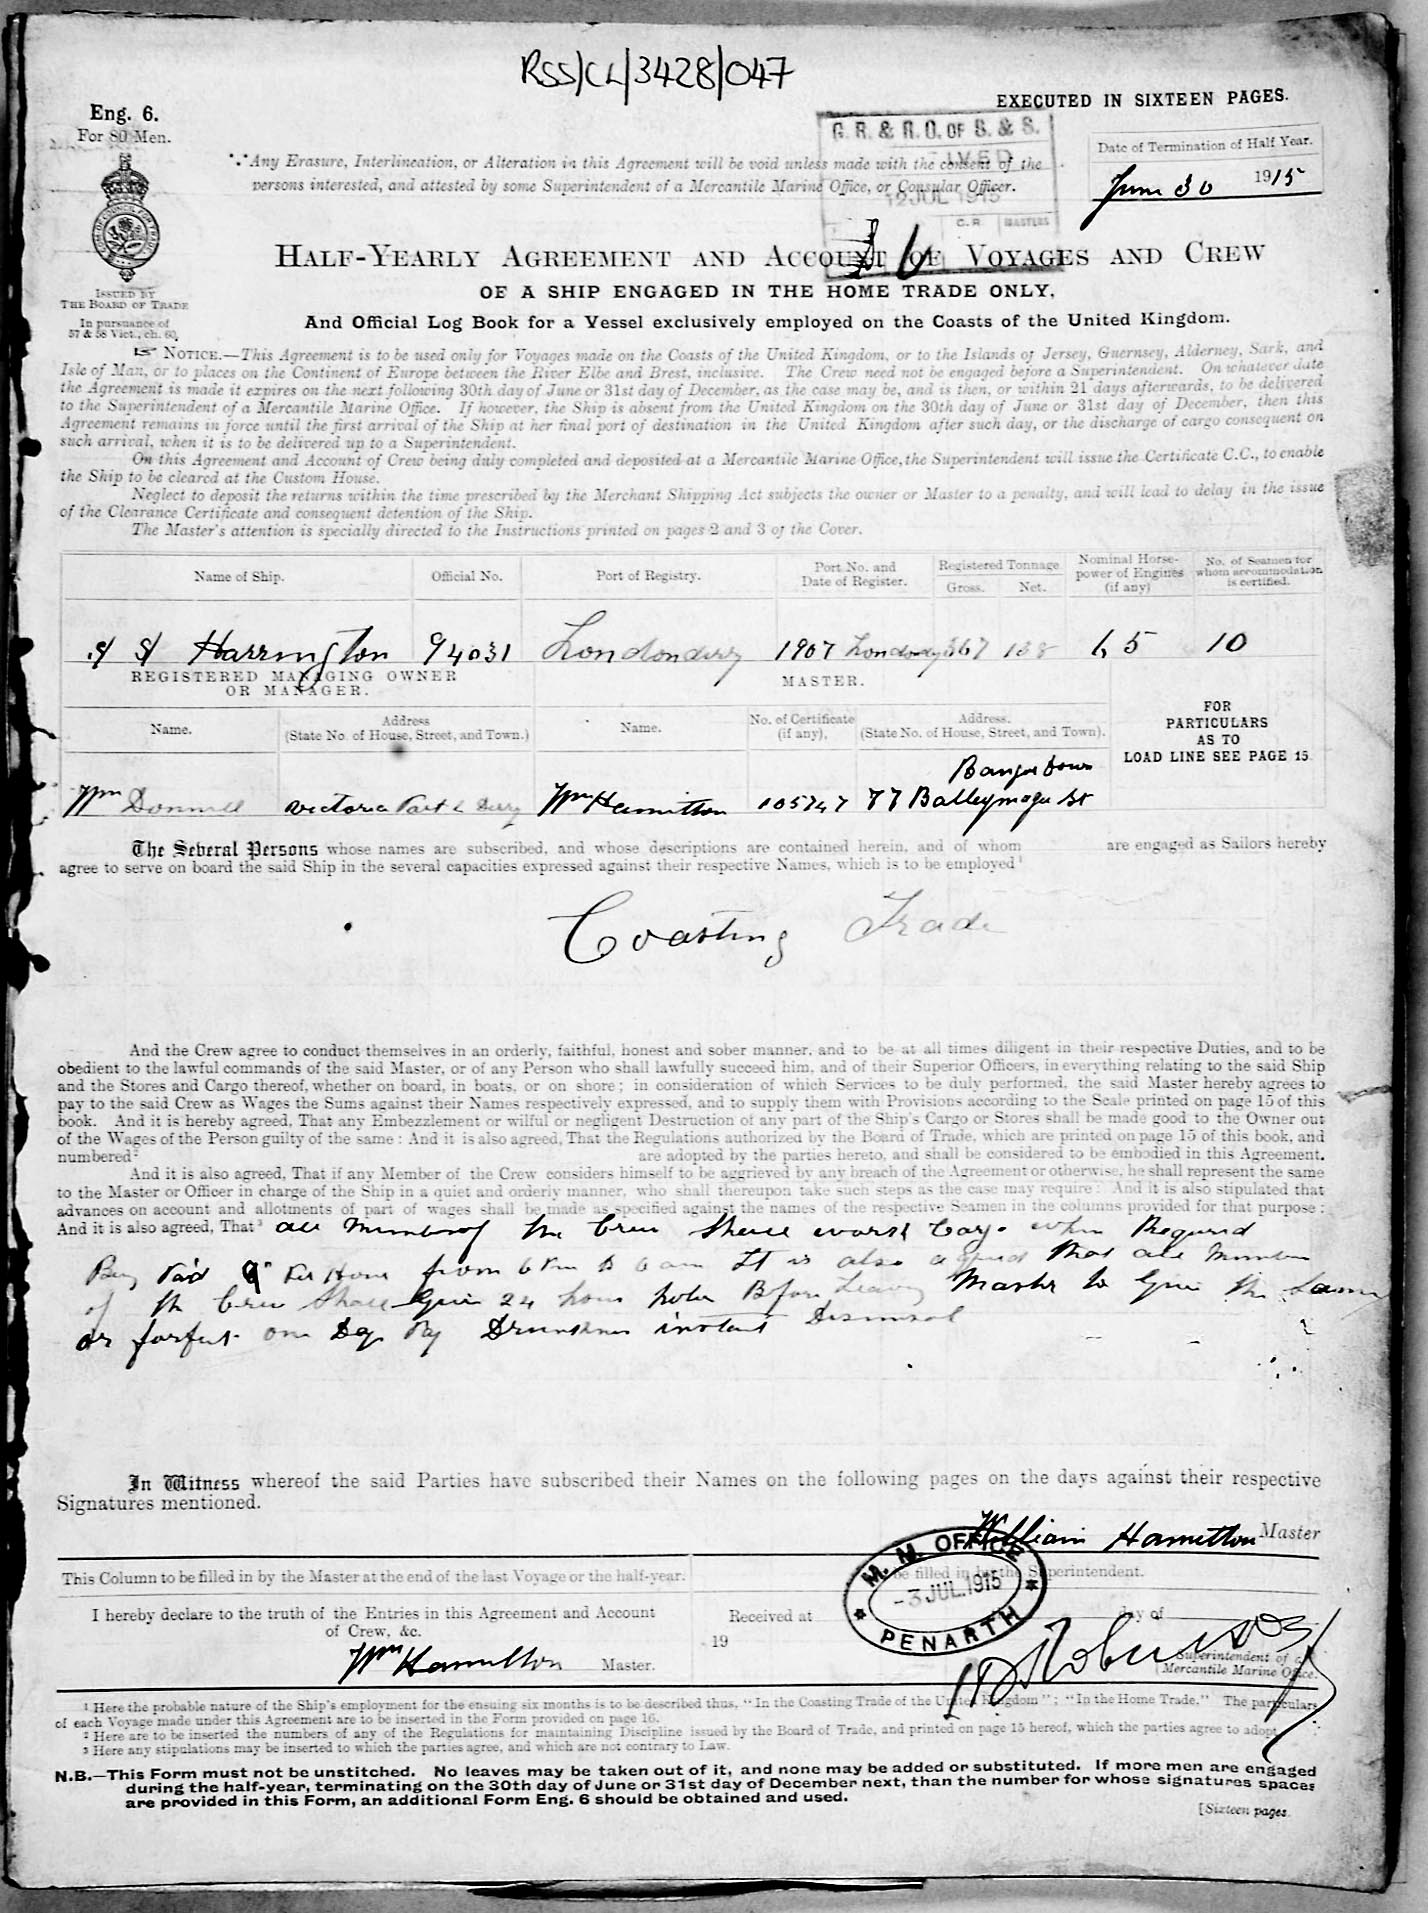 RSS/CL/3428/047
EXECUTED IN SIXTEEN PAGES.
Eng. 6.
For 80 Men.
G. R. & R. O. OF S. & S.
12 JUL 1915
C. R. MASTERS
Date of Termination of Half Year.
June 30 1915
Any Erasure, Interlineation, or Alteration in this Agreement will be void unless made with the consent of the
persons interested, and attested by some Superintendent of a Mercantile Marine Office, or Consular Officer.
HALF-YEARLY AGREEMENT AND ACCOUNT OF VOYAGES AND CREW
OF A SHIP ENGAGED IN THE HOME TRADE ONLY,
And Official Log Book for a Vessel exclusively employed on the Coasts of the United Kingdom.
ISSUED BY
THE BOARD OF TRADE
In pursuance of
57 & 58 Vict., ch. 60,
NOTICE.—This Agreement is to be used only for Voyages made on the Coasts of the United Kingdom, or to the Islands of Jersey, Guernsey, Alderney, Sark, and
Isle of Man, or to places on the Continent of Europe between the River Elbe and Brest, inclusive. The Crew need not be engaged before a Superintendent. On whatever date
the Agreement is made it expires on the next following 30th day of June or 31st day of December, as the case may be, and is then, or within 21 days afterwards, to be delivered
to the Superintendent of a Mercantile Marine Office. If however, the Ship is absent from the United Kingdom on the 30th day of June or 31st day of December, then this
Agreement remains in force until the first arrival of the Ship at her final port of destination in the United Kingdom after such day, or the discharge of cargo consequent on
such arrival, when it is to be delivered up to a Superintendent.
On this Agreement and Account of Crew being duly completed and deposited at a Mercantile Marine Office, the Superintendent will issue the Certificate C.C., to enable
the Ship to be cleared at the Custom House.
Neglect to deposit the returns within the time prescribed by the Merchant Shipping Act subjects the owner or Master to a penalty, and will lead to delay in the issue
of the Clearance Certificate and consequent detention of the Ship.
The Master's attention is specially directed to the Instructions printed on pages 2 and 3 of the Cover.
Name of Ship. Official No. Port of Registry. Port No. and Date of Register. Registered Tonnage Gross. Net. Nominal Horse-power of Engines (if any) No. of Seamen for whom accommodation is certified.
S/S Harrington 94031 Londonderry 1907 Londondry 367 138 65 10
REGISTERED MANAGING OWNER
OR MANAGER.
MASTER.
Name. Address (State No. of House, Street, and Town.) Name. No. of Certificate (if any). Address. (State No. of House, Street, and Town).
FOR
PARTICULARS
AS TO
LOAD LINE SEE PAGE 15
Bangor Down
Wm Donnell Victoria Derry Wm Hamilton 105747 77 Balleymagee St
The Several Persons whose names are subscribed, and whose descriptions are contained herein, and of whom are engaged as Sailors hereby
agree to serve on board the said Ship in the several capacities expressed against their respective Names, which is to be employed¹
Coasting Trade
And the Crew agree to conduct themselves in an orderly, faithful, honest and sober manner, and to be at all times diligent in their respective Duties, and to be
obedient to the lawful commands of the said Master, or of any Person who shall lawfully succeed him, and of their Superior Officers, in everything relating to the said Ship
and the Stores and Cargo thereof, whether on board, in boats, or on shore; in consideration of which Services to be duly performed, the said Master hereby agrees to
pay to the said Crew as Wages the Sums against their Names respectively expressed, and to supply them with Provisions according to the Scale printed on page 15 of this
book. And it is hereby agreed, That any Embezzlement or wilful or negligent Destruction of any part of the Ship's Cargo or Stores shall be made good to the Owner out
of the Wages of the Person guilty of the same: And it is also agreed, That the Regulations authorized by the Board of Trade, which are printed on page 15 of this book, and
numbered² are adopted by the parties hereto, and shall be considered to be embodied in this Agreement.
And it is also agreed, That if any Member of the Crew considers himself to be aggrieved by any breach of the Agreement or otherwise, he shall represent the same
to the Master or Officer in charge of the Ship in a quiet and orderly manner, who shall thereupon take such steps as the case may require: And it is also stipulated that
advances on account and allotments of part of wages shall be made as specified against the names of the respective Seamen in the columns provided for that purpose:
And it is also agreed, That³ all of the Crew shall work Cargo when Required
Being Paid 9d Per Hour from 6 Pm to 6 am It is also agreed that all
of the Crew shall Give 24 hours Before Leaving Master to Give the Same
or forfeit one Days Pay instant Dismisal
In Witness whereof the said Parties have subscribed their Names on the following pages on the days against their respective
Signatures mentioned.
William Hamilton Master
This Column to be filled in by the Master at the end of the last Voyage or the half-year.
be filled in by the Superintendent.
I hereby declare to the truth of the Entries in this Agreement and Account
of Crew, &c.
Wm Hamilton Master.
Received at day of
19
M. M. OFFICE
-3 JUL.1915
PENARTH
Superintendent of a
Mercantile Marine Office.
¹ Here the probable nature of the Ship's employment for the ensuing six months is to be described thus, "In the Coasting Trade of the United Kingdom"; "In the Home Trade." The particulars
of each Voyage made under this Agreement are to be inserted in the Form provided on page 16.
² Here are to be inserted the numbers of any of the Regulations for maintaining Discipline issued by the Board of Trade, and printed on page 15 hereof, which the parties agree to adopt
³ Here any stipulations may be inserted to which the parties agree, and which are not contrary to Law.
N.B.—This Form must not be unstitched. No leaves may be taken out of it, and none may be added or substituted. If more men are engaged
during the half-year, terminating on the 30th day of June or 31st day of December next, than the number for whose signatures spaces
are provided in this Form, an additional Form Eng. 6 should be obtained and used.
[Sixteen pages